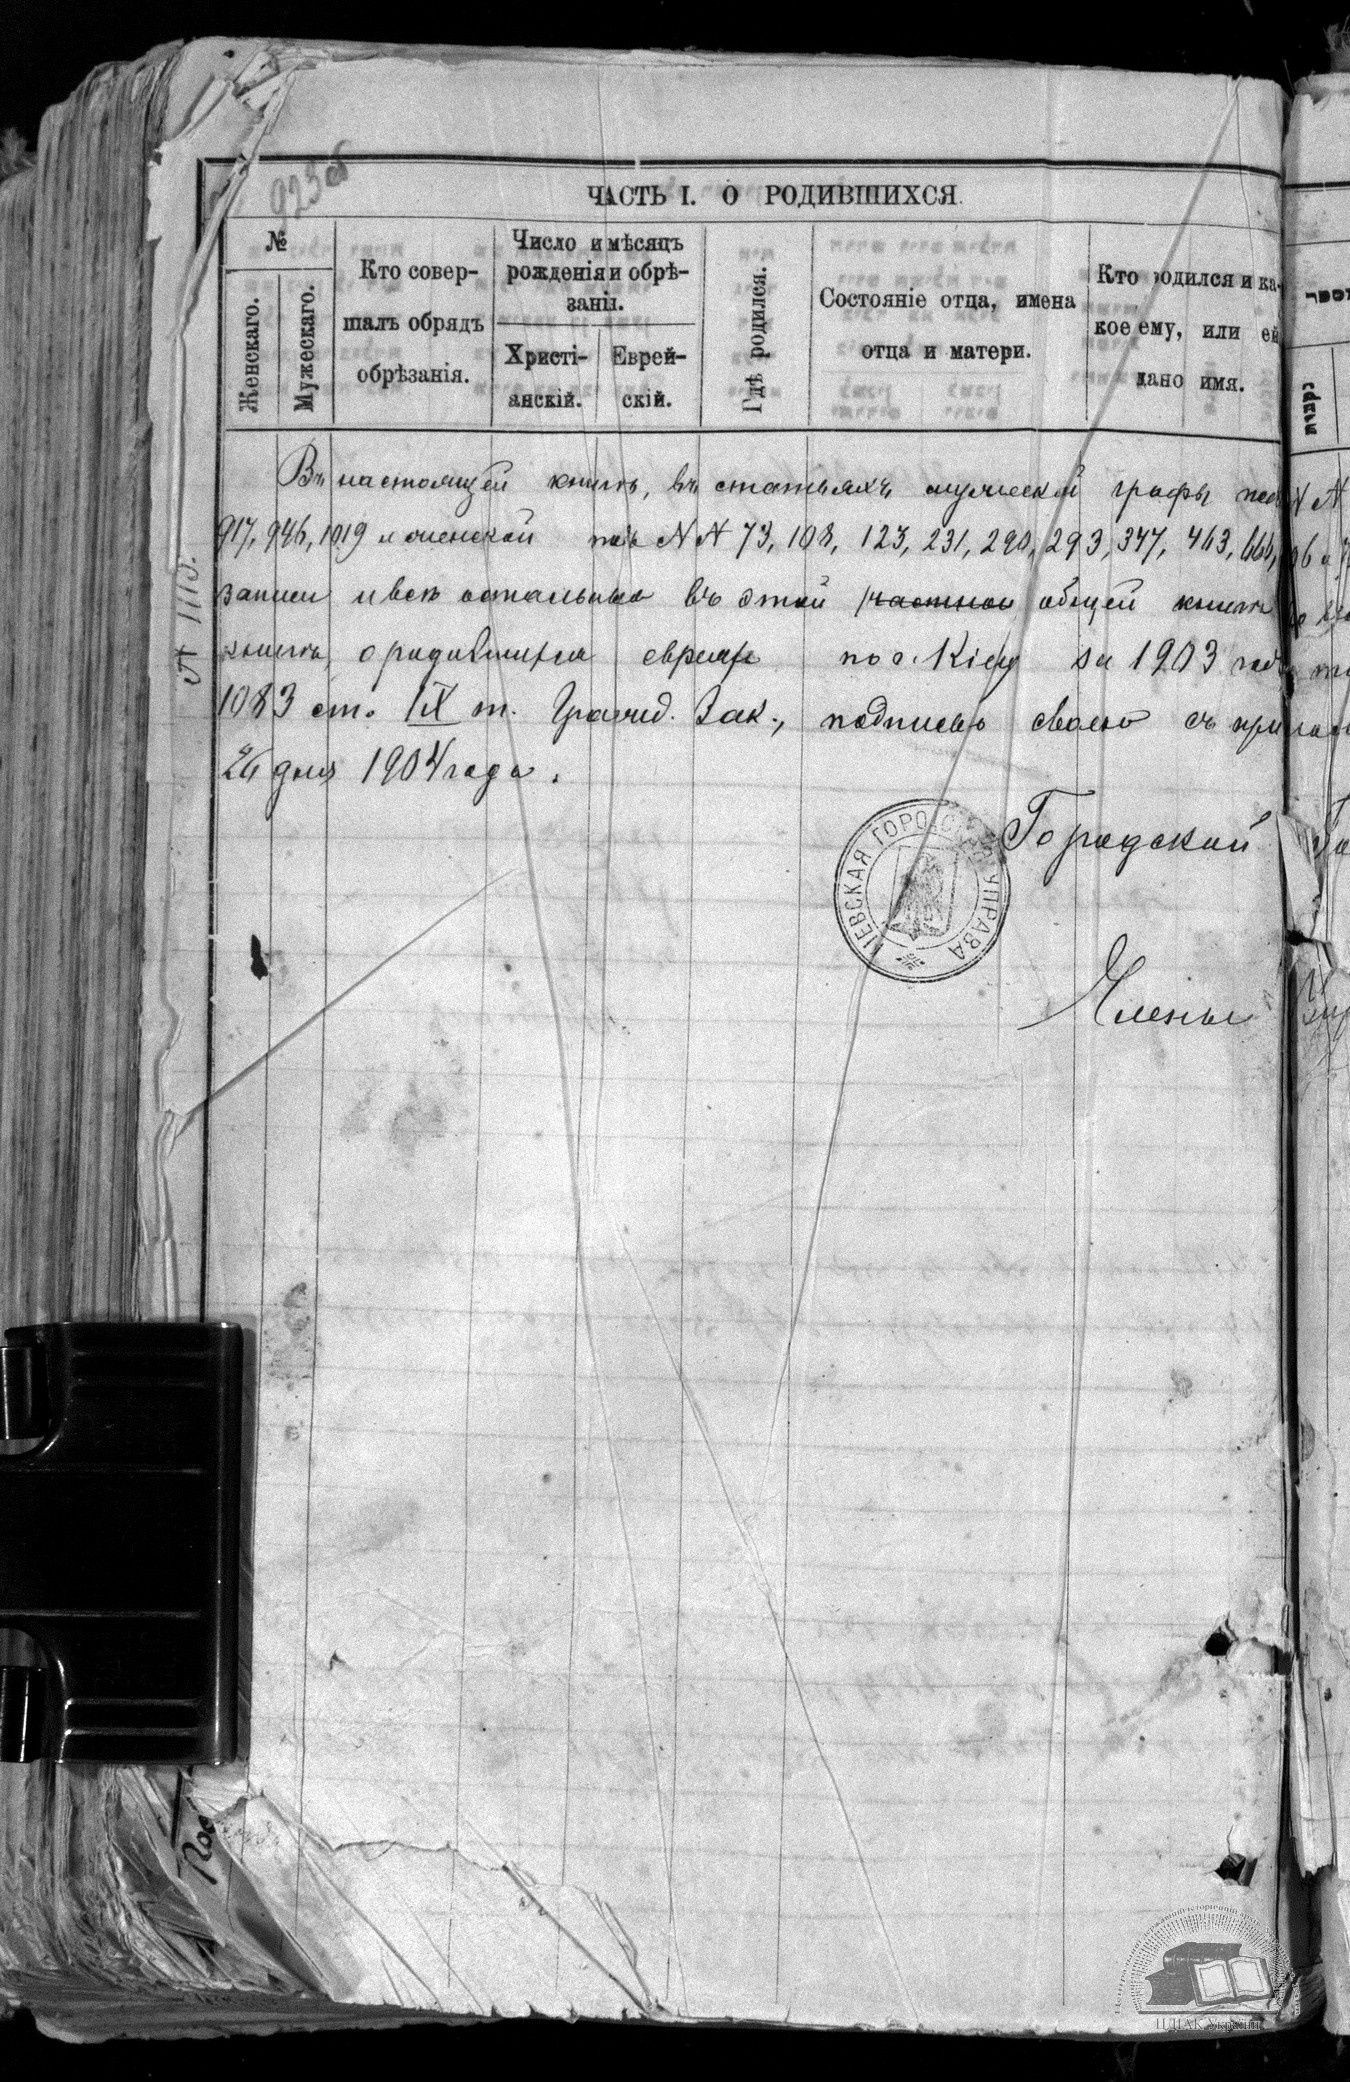 923об
ЧАСТЬ I. О РОДИВШИХСЯ.
№
Женскаго.
Мужескаго.
Кто совер-
шалъ обрядъ
обрѣзанія.
Число и мѣсяцъ
рожденія и обрѣ-
занія.
Христі-
анскій.
Еврей-
скій.
Гдѣ родился.
Состояніе отца, имена
отца и матери.
Кто родился и ка-
кое ему, или ей
дано имя.
Въ настоящей книгѣ, въ статьяхъ мужеской графы под N A
917, 946, 1019 и женской подъ N N 73, 108, 123, 231, 290, 293, 347, 463, 666,
записи и всѣ остальныя въ этой частной общей книгѣ
книгѣ, о родившихся евреях по г. Кіеву за 1903 годъ
1083 ст. IX т. Гражд. Зак., подписью своею съ прилож
26 дня 1904 года.
Городской Го
КІЕВСКАЯ ГОРОДСКАЯ УПРАВА
Члены Упр
ЦДІАК України